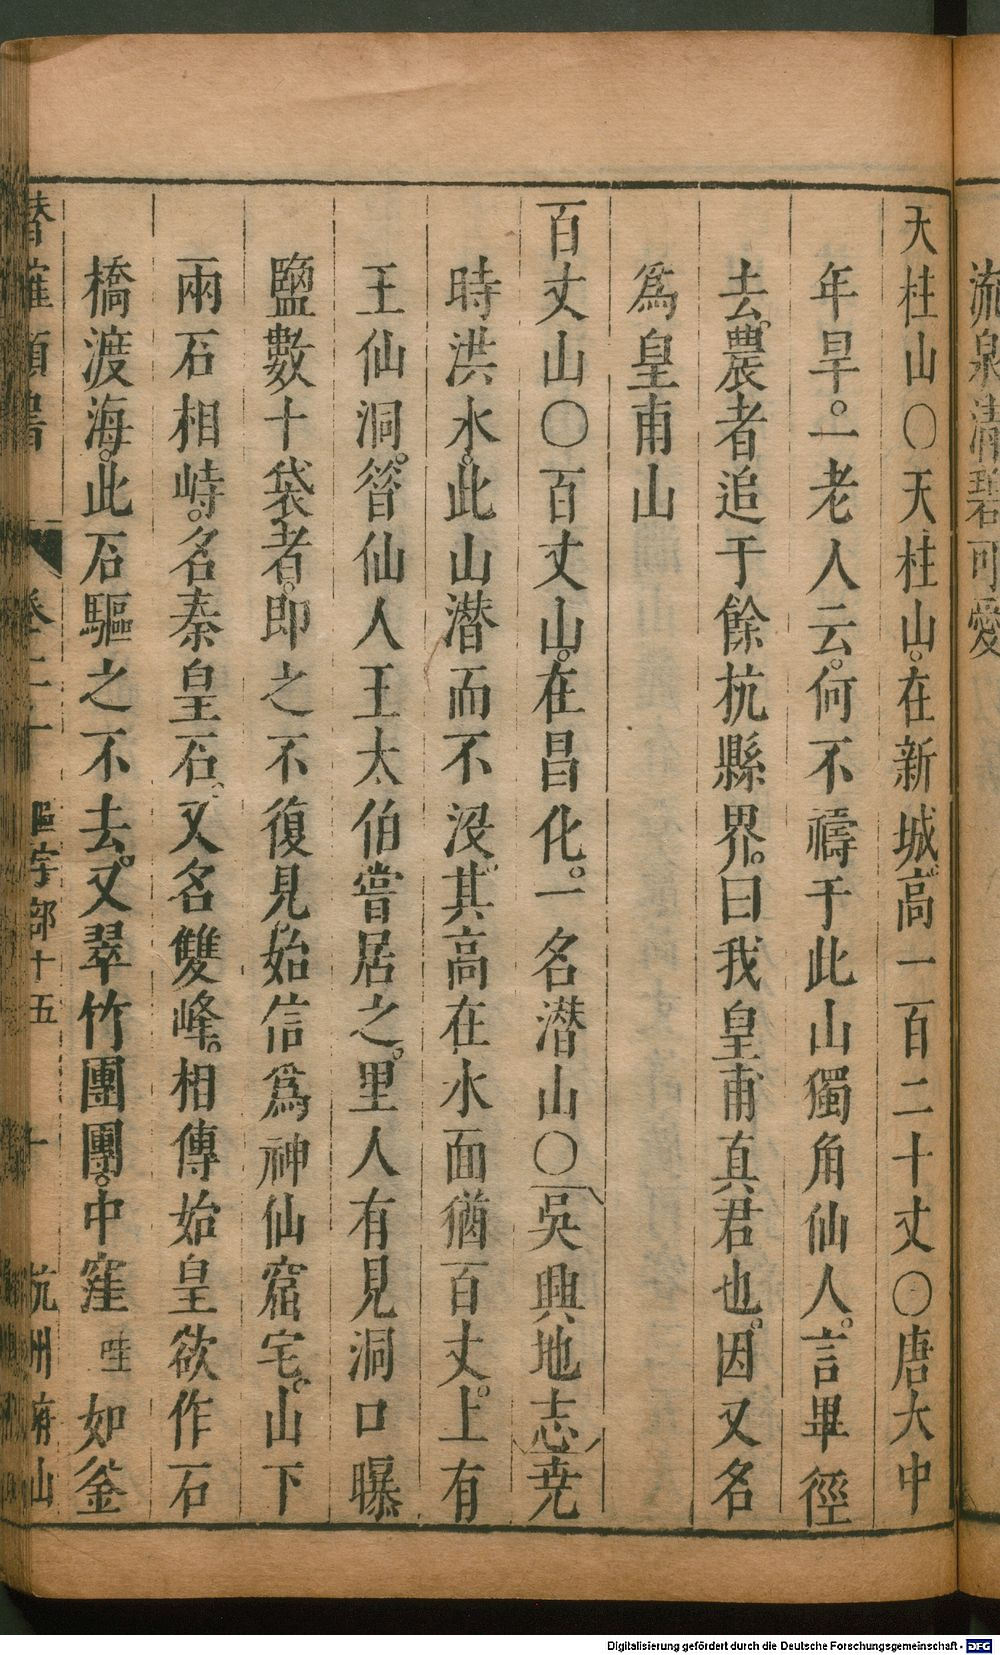 流泉清碧可愛
天柱山〇天柱山。在新城。高一百二十丈〇唐大中
年旱。一老人云。何不禱于此山獨角仙人。言畢徑
去。農者追于餘杭縣界。曰我皇甫真君也。因又名
爲皇甫山
百丈山〇百丈山。在昌化。一名潜山〇吳興地志尭
時洪水。此山潜而不沒。其高在水面猶百丈。上有
王仙洞。簮仙人王太伯嘗居之。里人有見洞口曝
鹽數十袋者。即之不復見。始信爲神仙窟宅。山下
兩石相峙。名秦皇石。又名雙峰。相傳始皇欲作石
橋渡海。此石驅之不去。又翠竹團團。中窪哇如釜
潜確類書
卷二十
區宇部十五
十
杭州府山
Digitalisierung gefördert durch die Deutsche Forschungsgemeinschaft - DFG